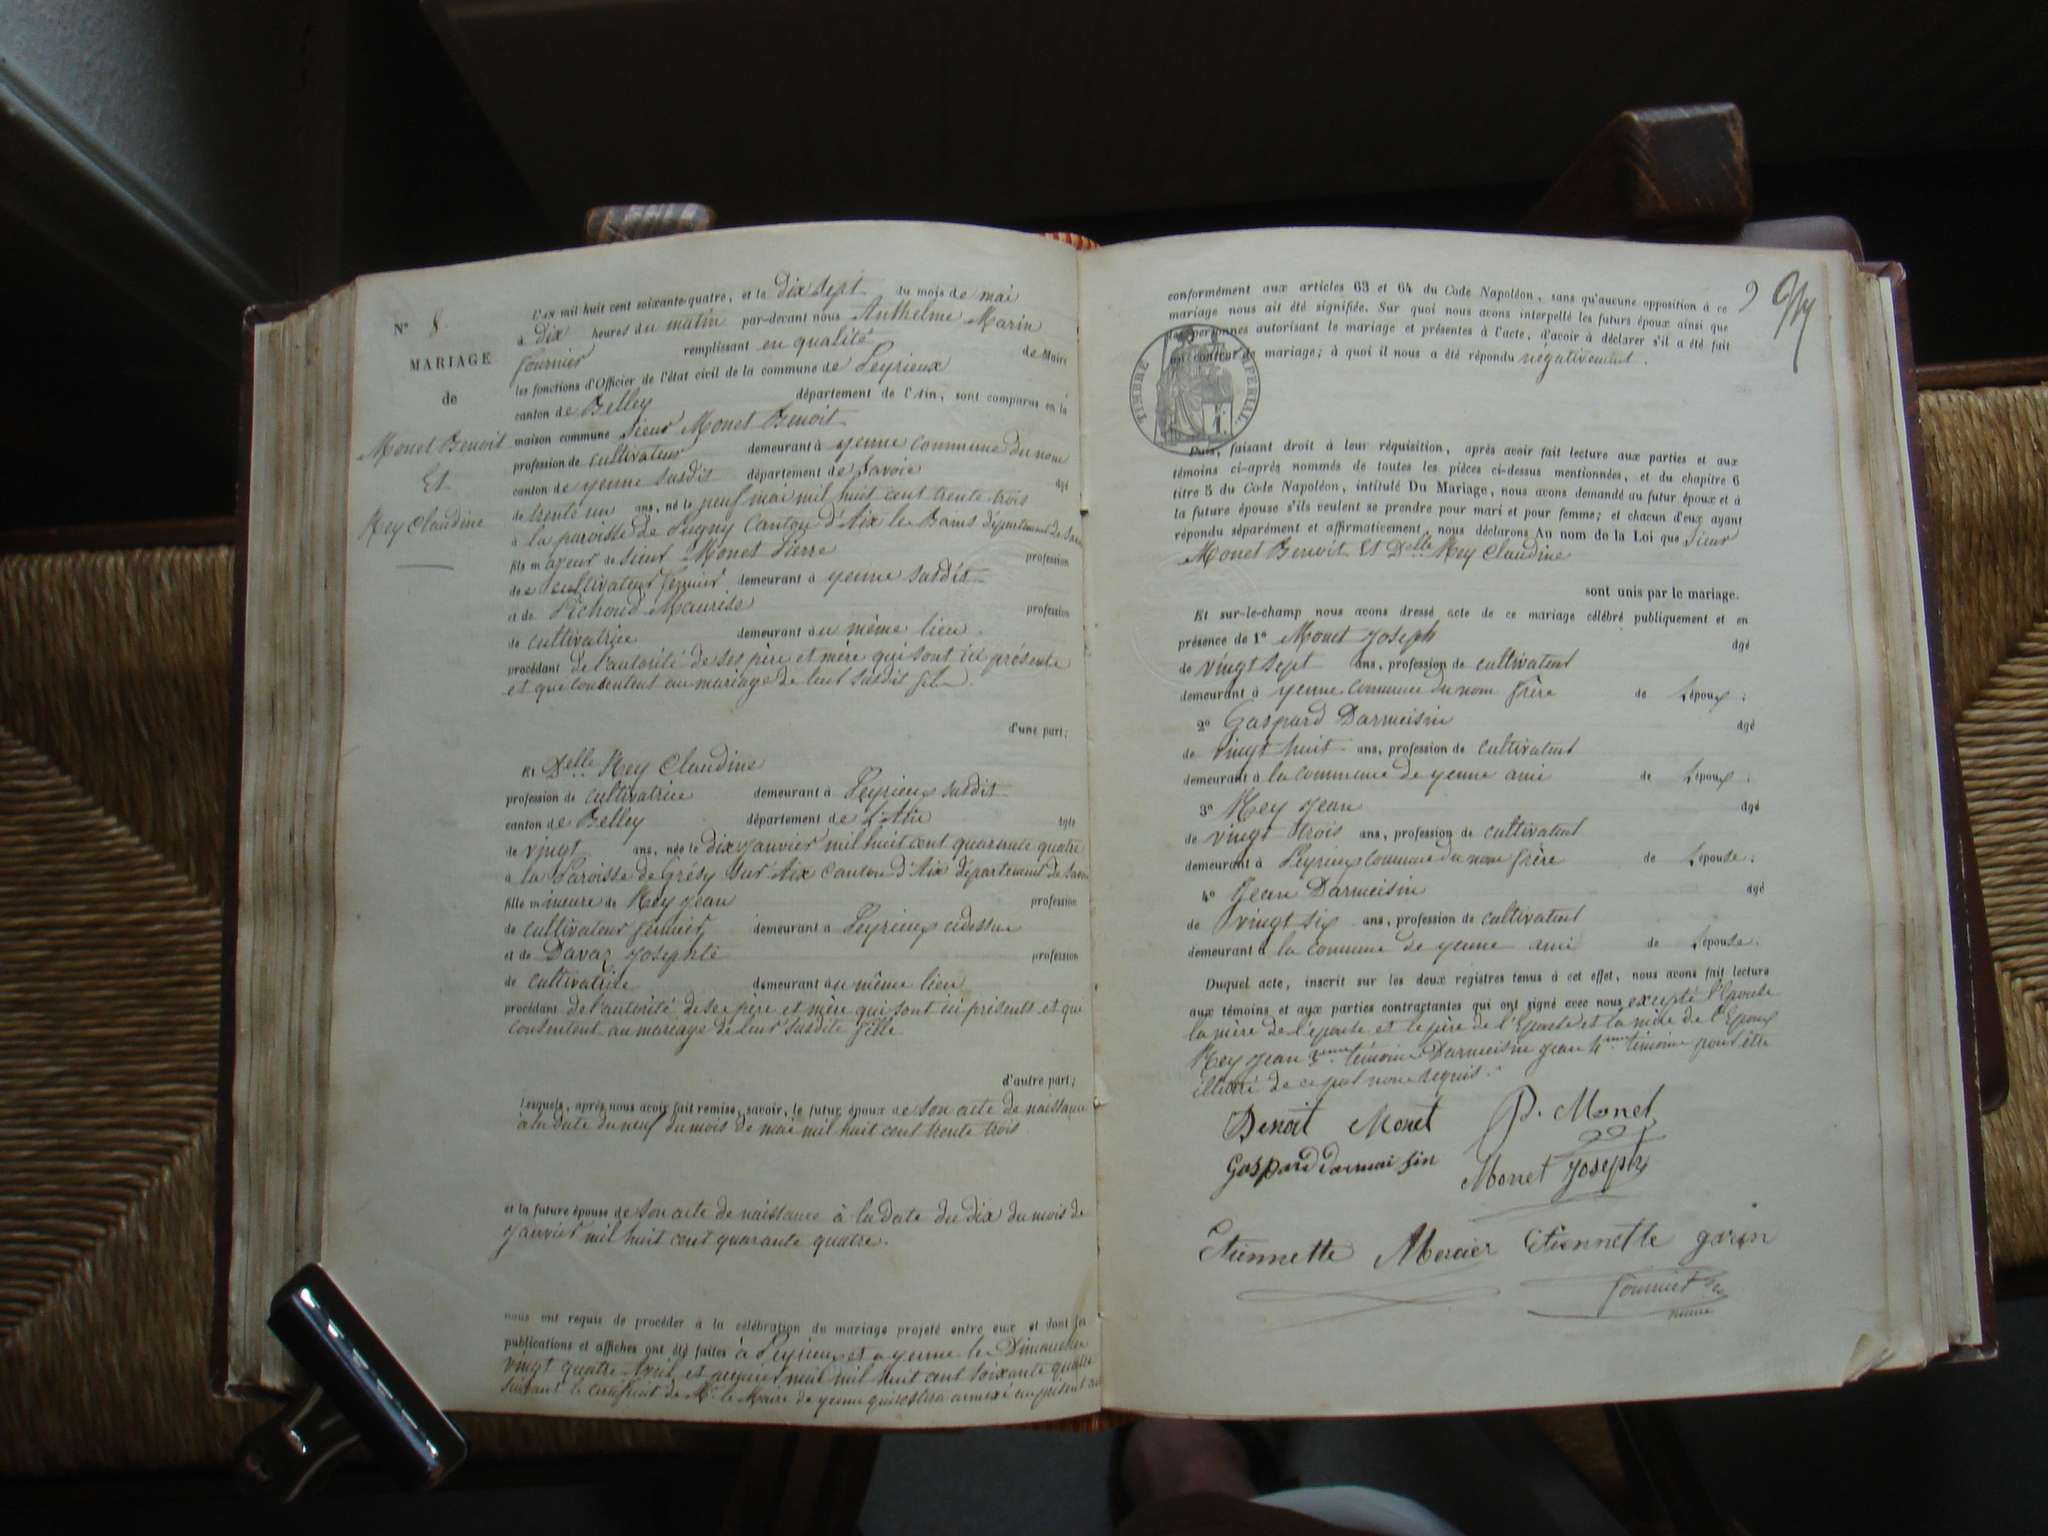 N° 8.
MARIAGE
de
Monet Benoit
Et
Rey Claudine
L'AN mil huit cent soixante-quatre, et le dix sept du mois de mai
à dix heures du matin par-devant nous Anthelme Marin
fournier remplissant en qualité de Maire
les fonctions d'Officier de l'état civil de la commune de Peyrieux
canton de Belley département de l'Ain, sont comparus en la
maison commune Sieur Monet Benoit
profession de cultivateur demeurant à yenne commune du nom
canton de yenne susdit département de Savoie âgé
de trente un ans, né le neuf mai mil huit cent trente trois
à la paroisse de Pugny Canton d'Aix les Bains département de Savoie
fils majeur de sieur Monet Pierre profession
de cultivateur fermier demeurant à yenne susdit
et de Pichoud Maurise profession
de cultivatrice demeurant au même lieu.
procédant de l'autorité de ses père et mère qui sont ici présents
et que consentent au mariage de leur susdit fils.
d'une part;
Et Delle Rey Claudine
profession de cultivatrice demeurant à Peyrieux susdit
canton de Belley département de l'Ain âgée
de vingt ans, née le dix janvier mil huit cent quarante quatre
à la Paroisse de Grésy sur Aix canton d'Aix département de Savoie
fille mineure de Rey Jean profession
de cultivateur fermier, demeurant à Peyrieux cidessus
et de Davaz Josephte profession
de cultivatrice demeurant au même lieu
procédant de l'autorité de ses père et mère qui sont ici présents et que
consentent au mariage de leur susdite fille
d'autre part;
Lesquels, après nous avoir fait remise, savoir, le futur époux de son acte de naissance
à la date du neuf du mois de mai mil huit cent trente trois
et la future épouse de son acte de naissance à la date du dix du mois de
janvier mil huit cent quarante quatre.
nous ont requis de procéder à la célébration du mariage projeté entre eux et dont les
publications et affiches ont été faites à Peyrieux et a yenne le Dimanche
vingt quatre avril et premier mai mil huit cent soixante quatre
suivant le certificat de Mr. le Maire de yenne qui restera annexé au présent
9
conformément aux articles 63 et 64 du Code Napoléon, sans qu'aucune opposition à ce
mariage nous ait été signifiée. Sur quoi nous avons interpellé les futurs époux ainsi que
les personnes autorisant le mariage et présentes à l'acte, d'avoir à déclarer s'il a été fait
un contrat de mariage; à quoi il nous a été répondu négativement.
TIMBRE IMPERIAL
1 F.
Puis, faisant droit à leur réquisition, après avoir fait lecture aux parties et aux
témoins ci-après nommés de toutes les pièces ci-dessus mentionnées, et du chapitre 6
titre 5 du Code Napoléon, intitulé Du Mariage, nous avons demandé au futur époux et à
la future épouse s'ils veulent se prendre pour mari et pour femme; et chacun d'eux ayant
répondu séparément et affirmativement, nous déclarons Au nom de la Loi que Sieur
Monet Benoit Et Delle Rey Claudine
sont unis par le mariage.
Et sur-le-champ nous avons dressé acte de ce mariage célébré publiquement et en
présence de 1° Monet Joseph âgé
de vingt sept ans, profession de cultivateur
demeurant à yenne commune du nom frère de l'époux.
2° Gaspard Darmeisin âgé
de vingt huit ans, profession de cultivateur
demeurant à la commune de yenne ami de l'époux.
3° Rey Jean âgé
de vingt trois ans, profession de cultivateur
demeurant à Peyrieux commune du nom frère de l'épouse.
4° Jean Darmeisin âgé
de vingt six ans, profession de cultivateur
demeurant à la commune de yenne ami de l'épouse.
Duquel acte, inscrit sur les deux registres tenus à cet effet, nous avons fait lecture
aux témoins et aux parties contractantes qui ont signé avec nous excepté l'épouse
la mère de l'épouse et le père de l'épouse et la mère de l'Epoux
Rey Jean 3eme témoin Darmeisin Jean 4eme témoin pour être
illitéré de ce fait nous requis.
Benoit Monet P. Monet
Gaspard darmaisin Monet Joseph
Etiennette Mercier Etiennette gorin
fournier
maire